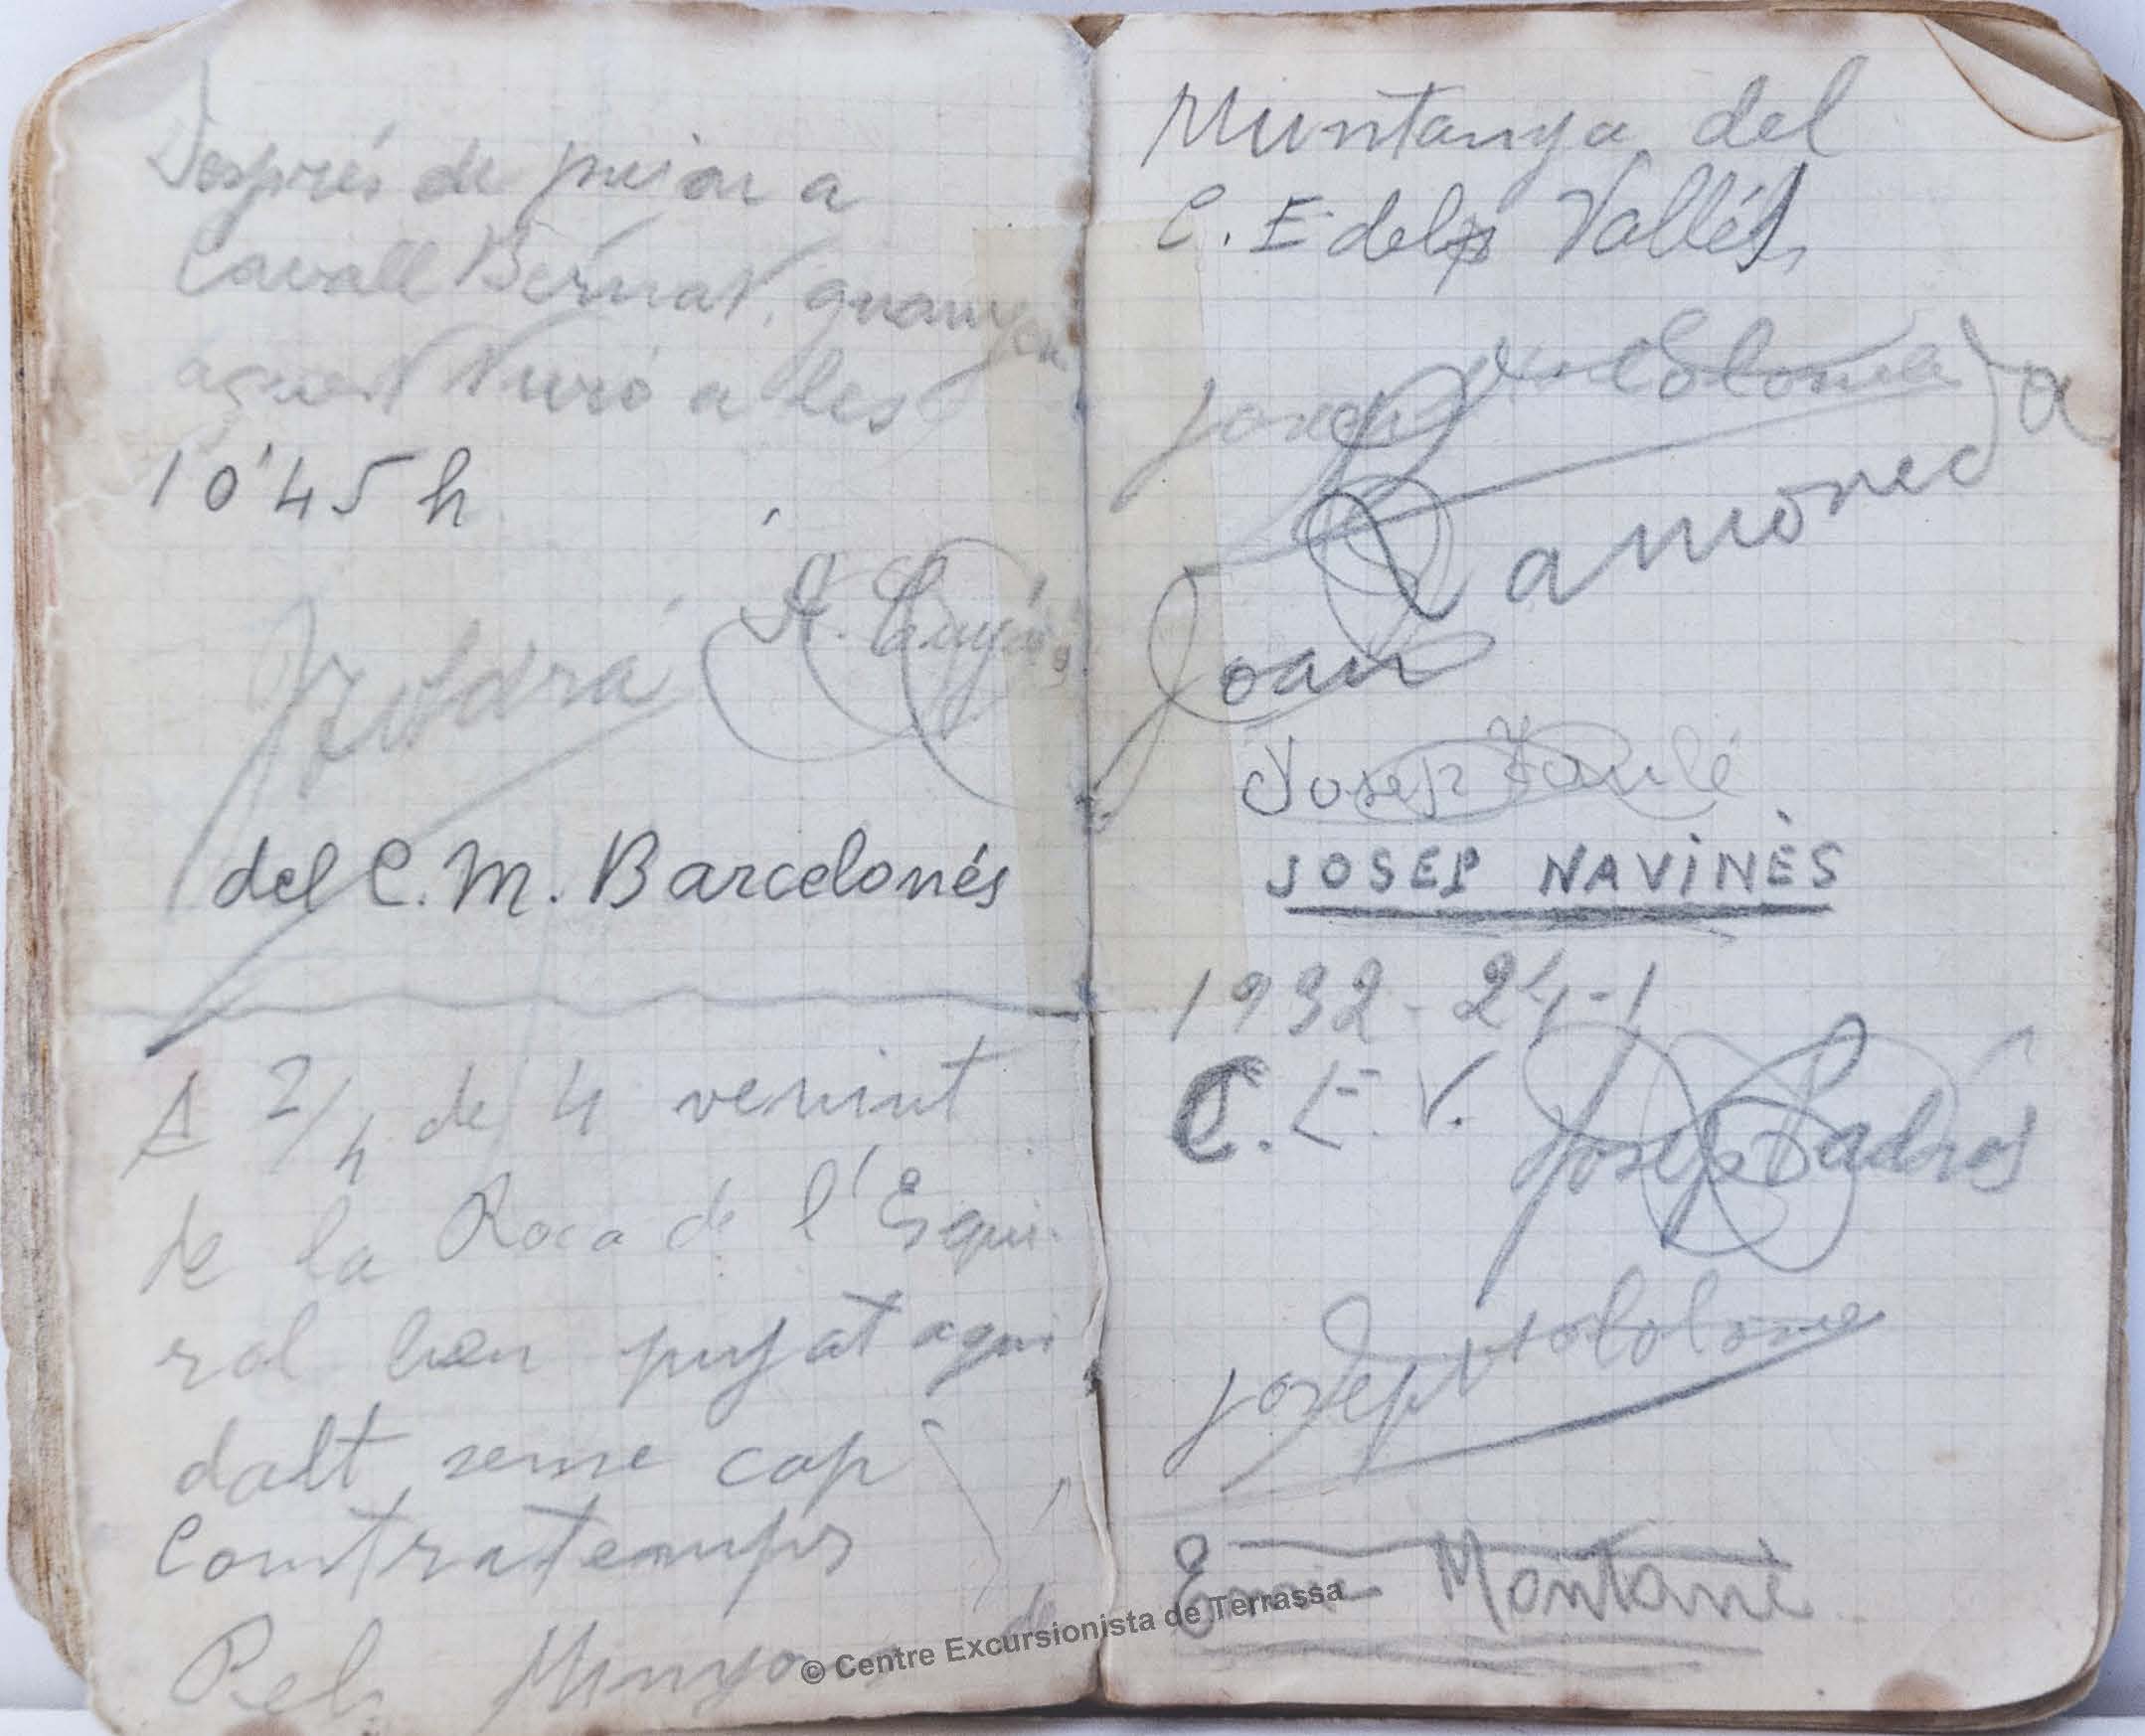 Després de pujar a
Cavall Bernat, guanyen
aquest Turó a les
10'45 h
del C. M. Barcelonés
A 2/4 de 4 venint
de la Roca de l'Esqui-
rol hem pujat aqui
dalt sense cap
Contratemps
Pels Minyons de
Muntanya del
C. E del Vallés
Josep
Joan Ramoneda
Josep Faulé
JOSEP NAVINÈS
1932 - 24 - 1
C. E. V. Josep Padrós
Josep
Enric Montané
© Centre Excursionista de Terrassa